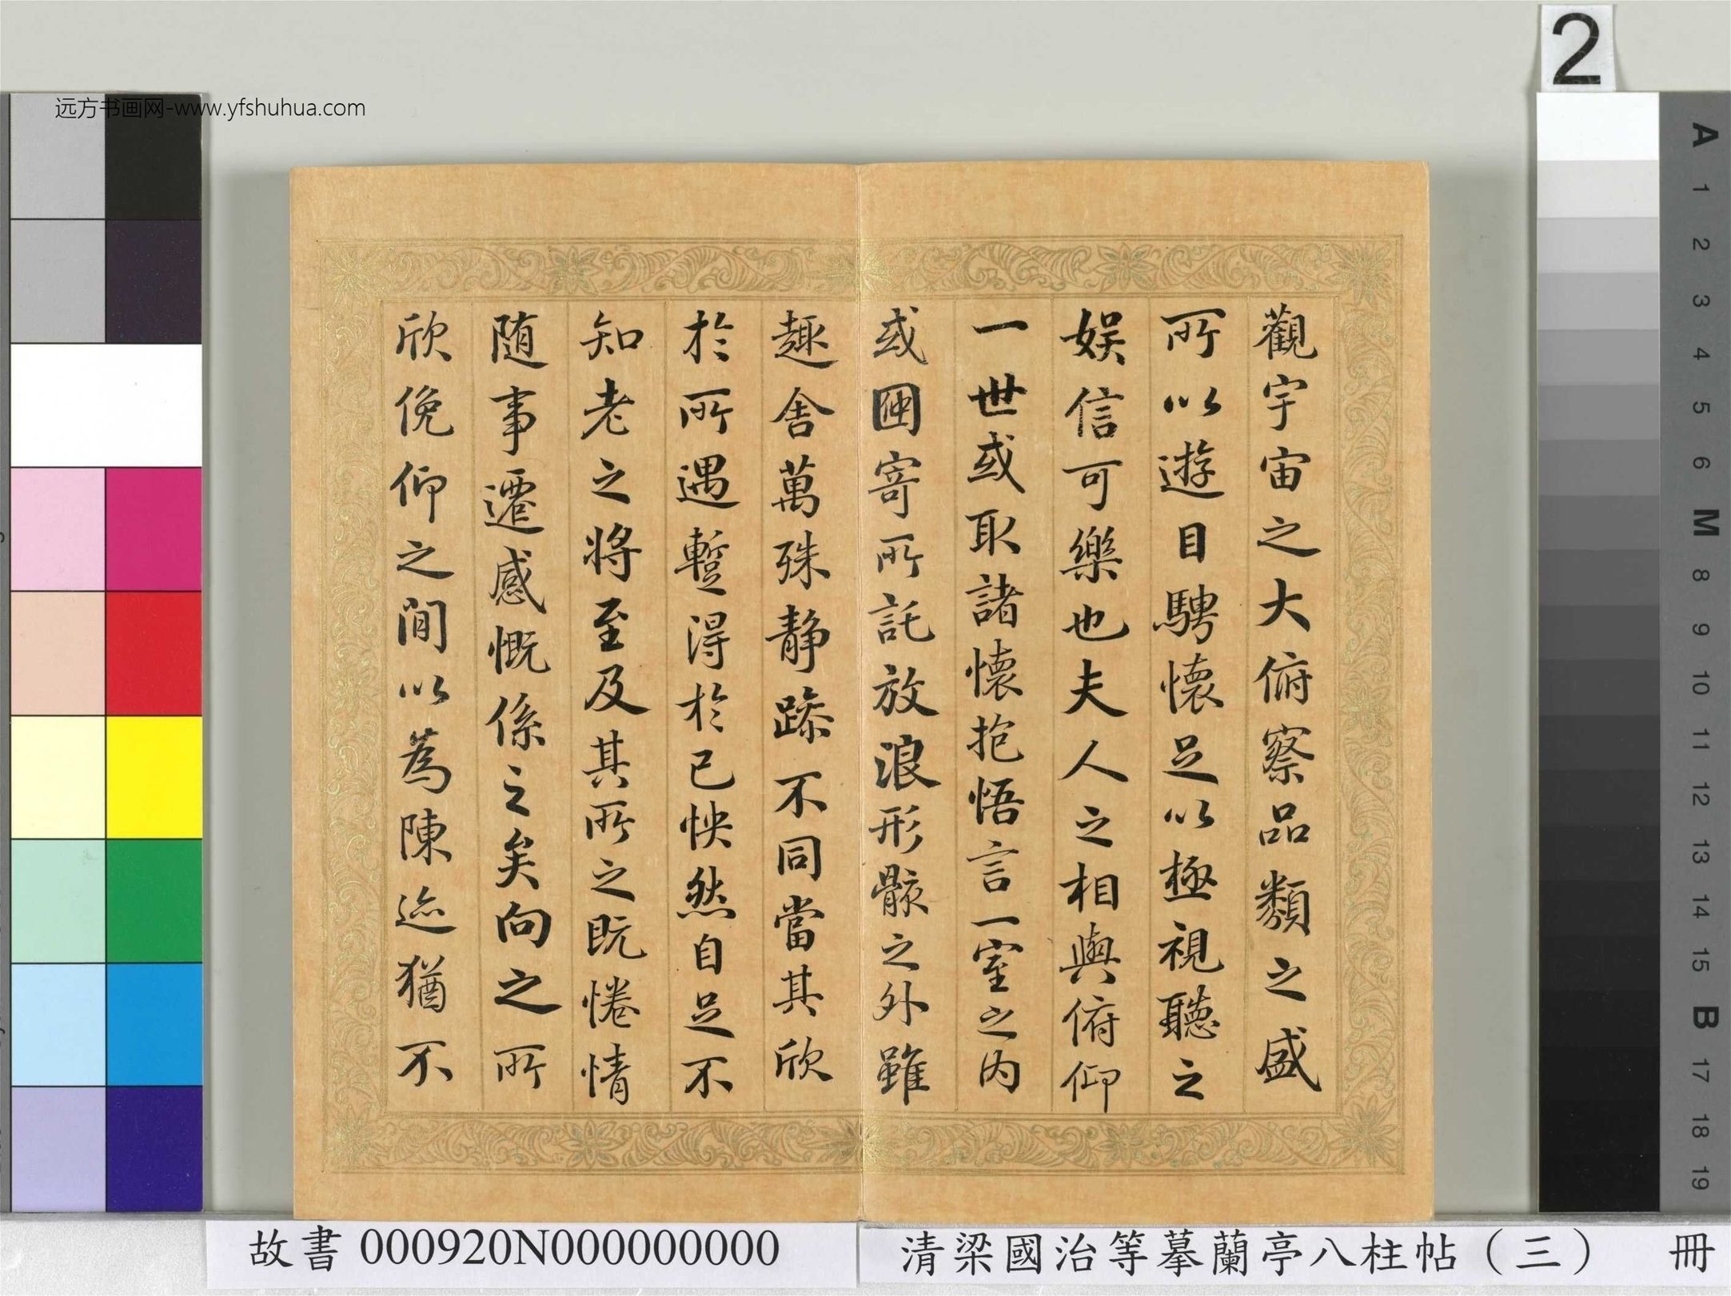 远方书画网-www.yfshuhua.com
2
觀宇宙之大俯察品類之盛
所以遊目騁懷足以極視聽之
娛信可樂也夫人之相與俯仰
一世或取諸懷抱悟言一室之內
或因寄所託放浪形骸之外雖
趣舍萬殊靜躁不同當其欣
於所遇暫得於己怏然自足不
知老之將至及其所之既惓情
随事遷感慨係之矣向之所
欣俛仰之閒以為陳迹猶不
A
1
2
3
4
5
6
M
8
9
10
11
12
13
14
15
B
17
18
19
故書 000920N000000000
清梁國治等摹蘭亭八柱帖（三） 冊